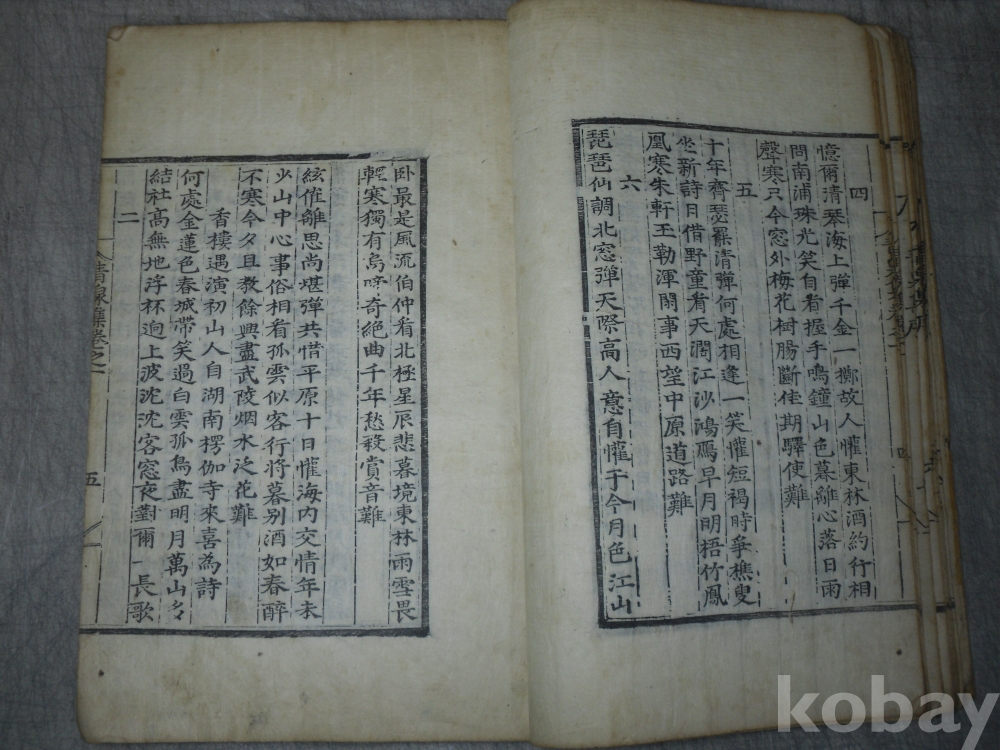 四
憶爾清琴海上彈千金一擲故人懽東林酒約行相
問南浦珠光笑自看握手鳴鐘山色暮離心落日雨
聲寒只今窓外梅花樹腸斷佳期驛使難
五
十年齊瑟罷清彈何處相逢一笑懽短褐時爭樵叟
坐新詩日借野童看天濶江沙鴻鴈早月明梧竹鳳
凰寒朱軒玉勒渾閑事西望中原道路難
六
琵琶仙調北窓彈天際高人意自懽于今月色江山
卧最是風流伯仲看北極星辰悲暮境東林雨雪畏
輕寒獨有鳥啼奇絕曲千年愁殺賞音難
絃催離思尚堪彈共惜平原十日懽海內交情年末
少山中心事俗相看孤雲似客行將暮别酒如春醉
不寒今夕且教餘興盡武陵烟水泛花難
香樓遇演初山人自湖南楞伽寺來喜為詩
何處金蓮色春城帶笑過白雲孤鳥盡明月萬山多
結社高無地浮杯逈上波沈沈客窓夜對爾一長歌
二
集卷之一
五
kobay